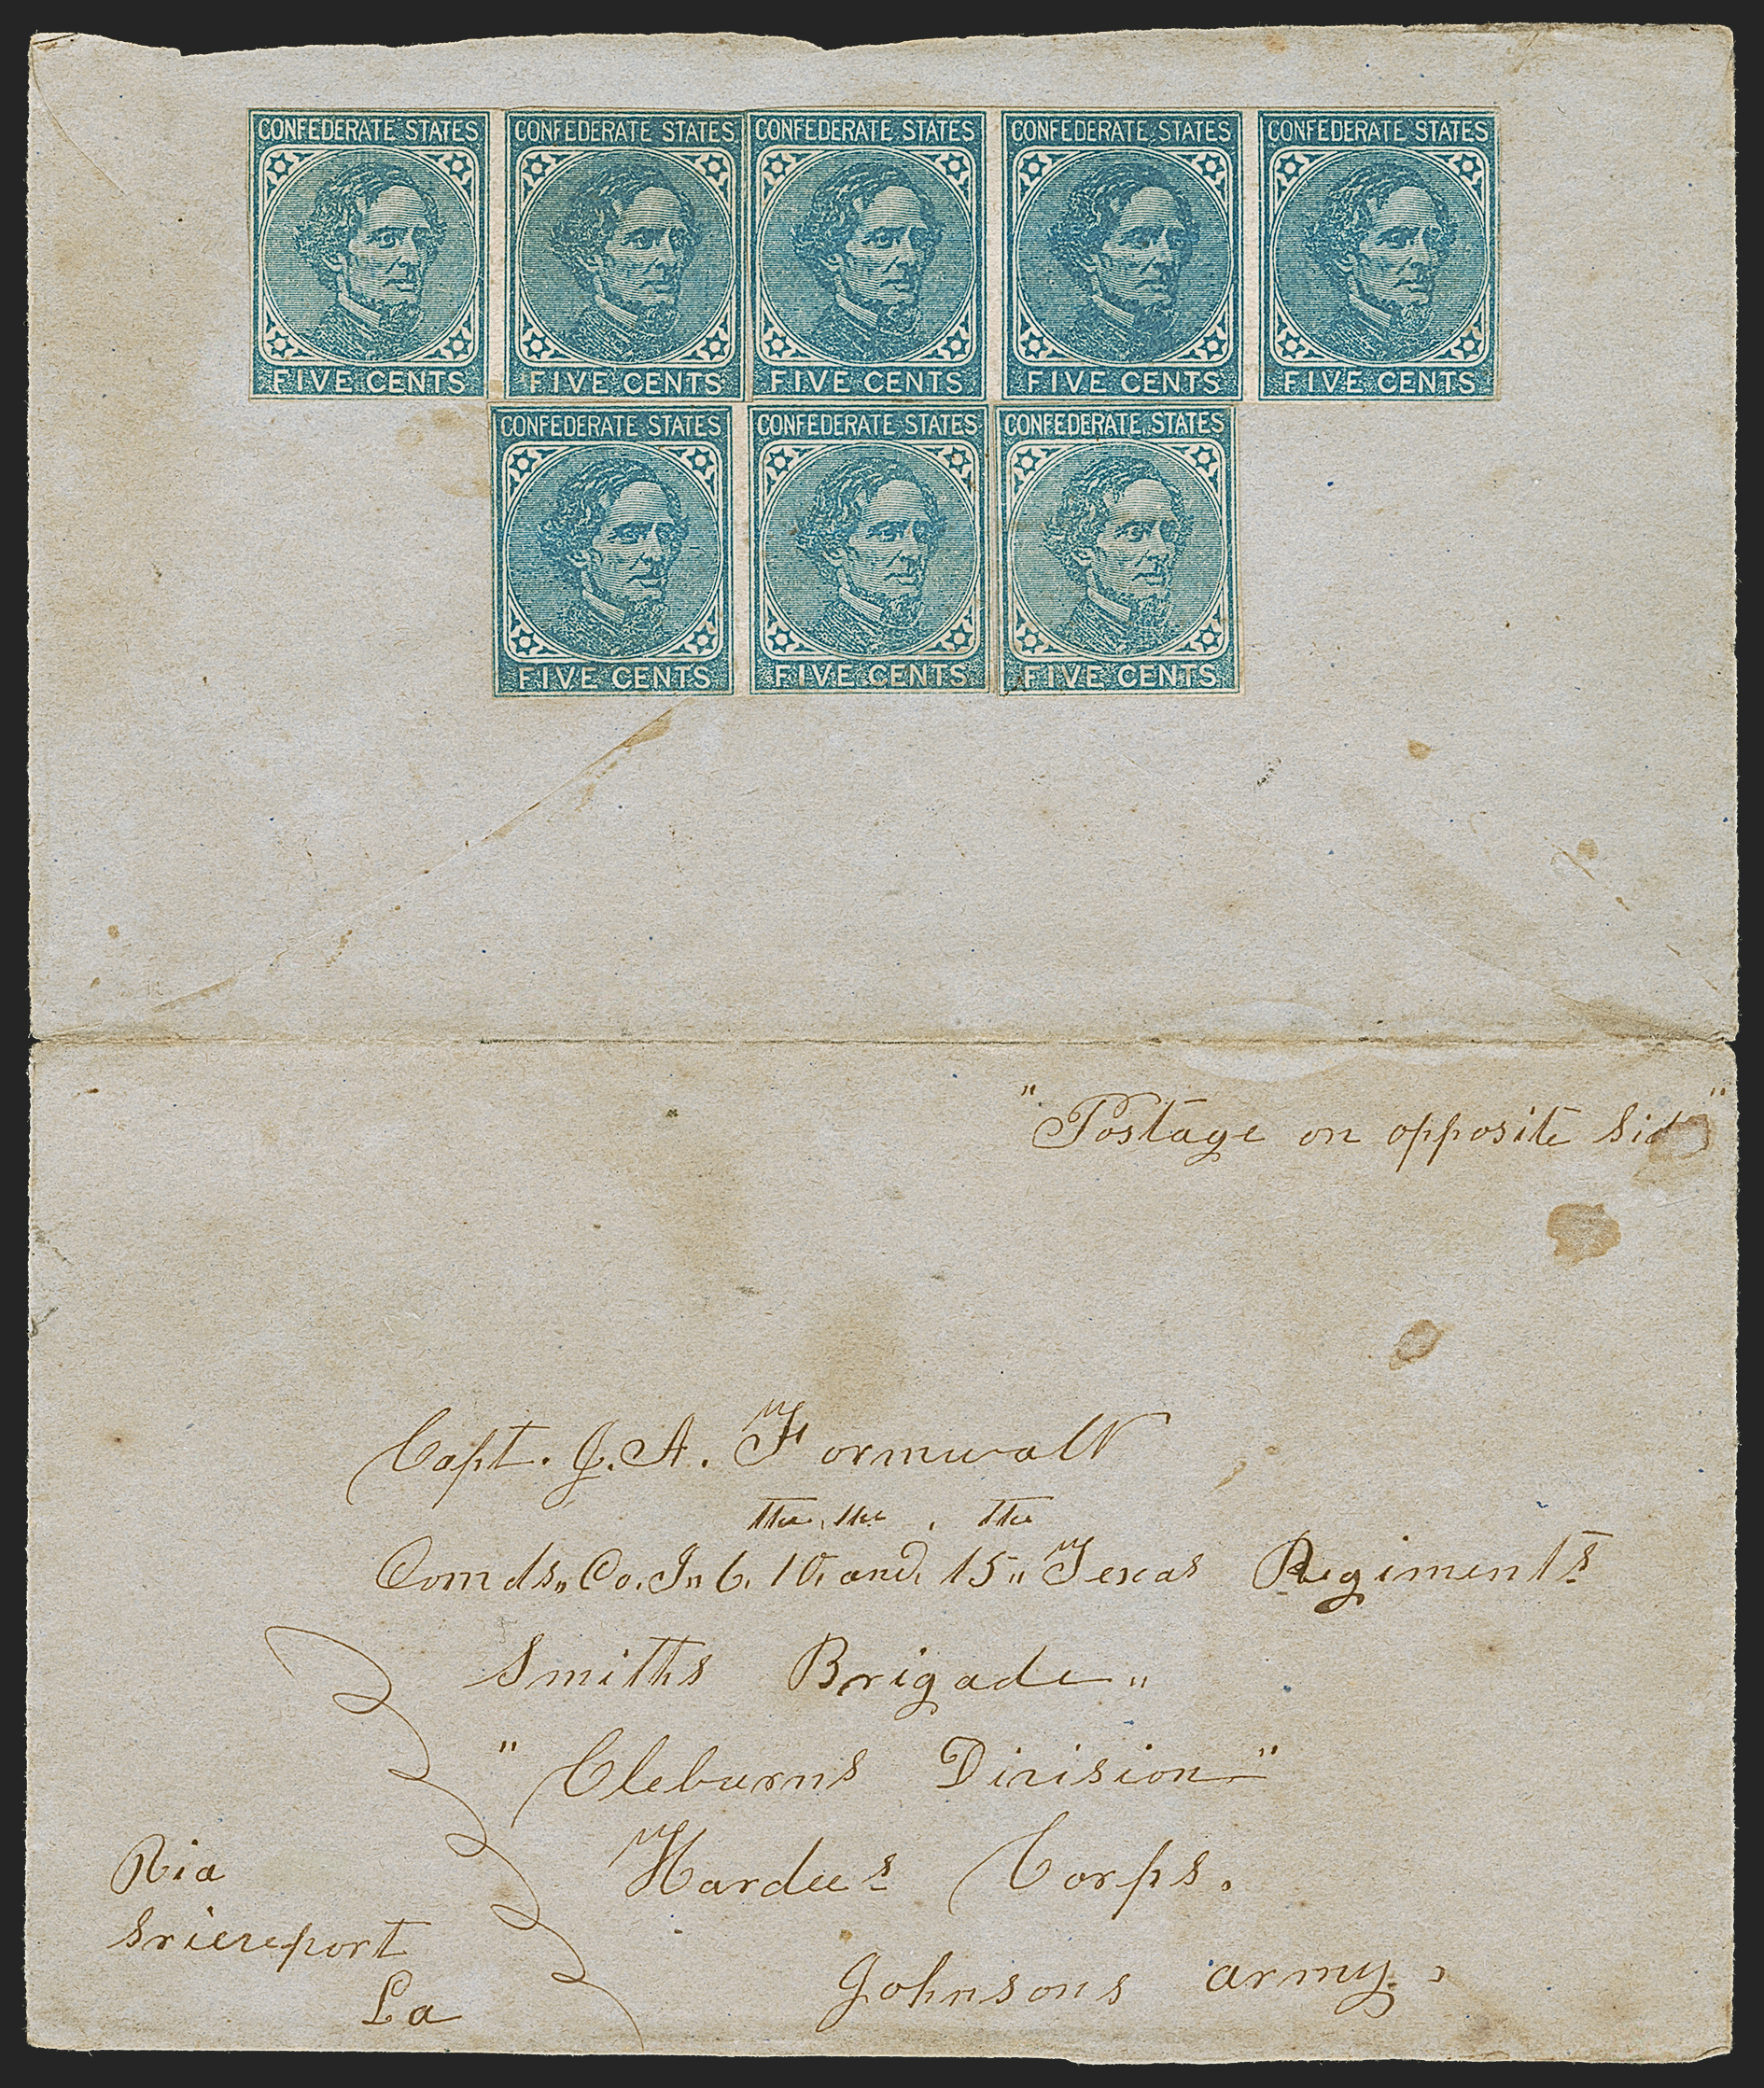 CONFEDERATE STATES CONFEDERATE STATES CONFEDERATE STATES CONFEDERATE STATES CONFEDERATE STATES
FIVE CENTS FIVE CENTS FIVE CENTS FIVE CENTS FIVE CENTS
CONFEDERATE STATES CONFEDERATE STATES CONFEDERATE STATES
FIVE CENTS FIVE CENTS FIVE CENTS
"Postage on opposite Side"
Capt. J. A. Formwalt
the the the
Comds,, Co. J,, 6, 10, and, 15,, Texas Regiments
Smiths Brigade,,
"Cleburns Division"
Hardees Corps.
Johnsons army,
Via
Sriereport
La